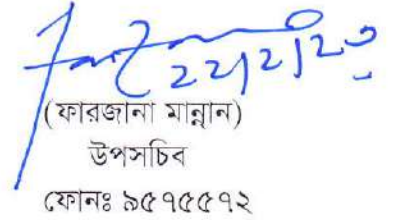 22/2/23
(ফারজানা মান্নান)
উপসচিব
ফোনঃ ৯৫৭৫৫৭২